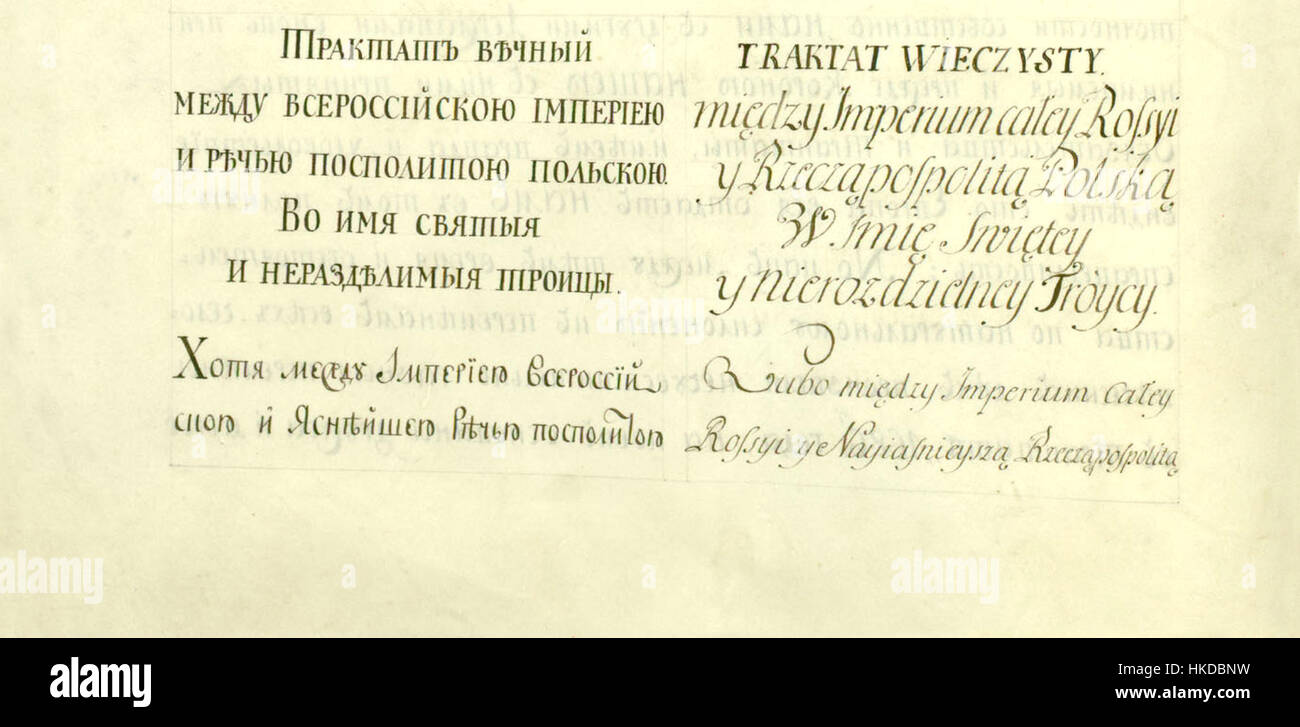 Трактатъ вѣчный
между Всероссійскою Імперіею
и Рѣчью Посполитою Польскою.
Во имя святыя
и нераздѣлимыя Троицы.
Хотя между Імперіею Всероссій
скою и Яснѣйшею Рѣчью посполитою
TRAKTAT WIECZYSTY.
między Imperium całey Rossyi
y Rzecząpospolitą Polską
W Imię Swiętey
y nierozdzielney Troycy.
Lubo między Imperium całey
Rossyi y Nayiasnieyszą Rzecząpospolitą
alamy
alamy
a
a
a
alamy
a
alamy
Image ID: HKDBNW
www.alamy.com